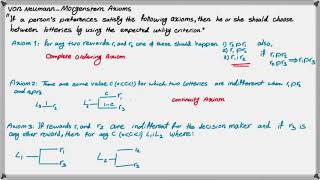 von neumann-Morgenstern Axioms
"If a person's preferences satisfy the following axioms, then he or she should choose
between lotteries by using the expected utility criterion."
Axiom 1: for any two rewards r₁ and r₂ one of these should happen 1) r₁pr₂ also,
2) r₂pr₁ if r₁pr₂
3) r₁ir₂ r₂pr₃
Complete ordering Axiom r₁pr₃
Axiom 2: There are some value c (0<c<1) for which two lotteries are indifferent when r₁pr₂
and r₂pr₃
L₁ 1 r₂ L₂ c r₁ 1-c r₃ continuity Axiom
Axiom 3: If rewards r₁ and r₂ are indifferent for the decision maker and if r₃ is
any other reward, then for any c (0<c<1) L₁iL₂ where:
L₁ r₁ r₃ L₂ r₂ r₃